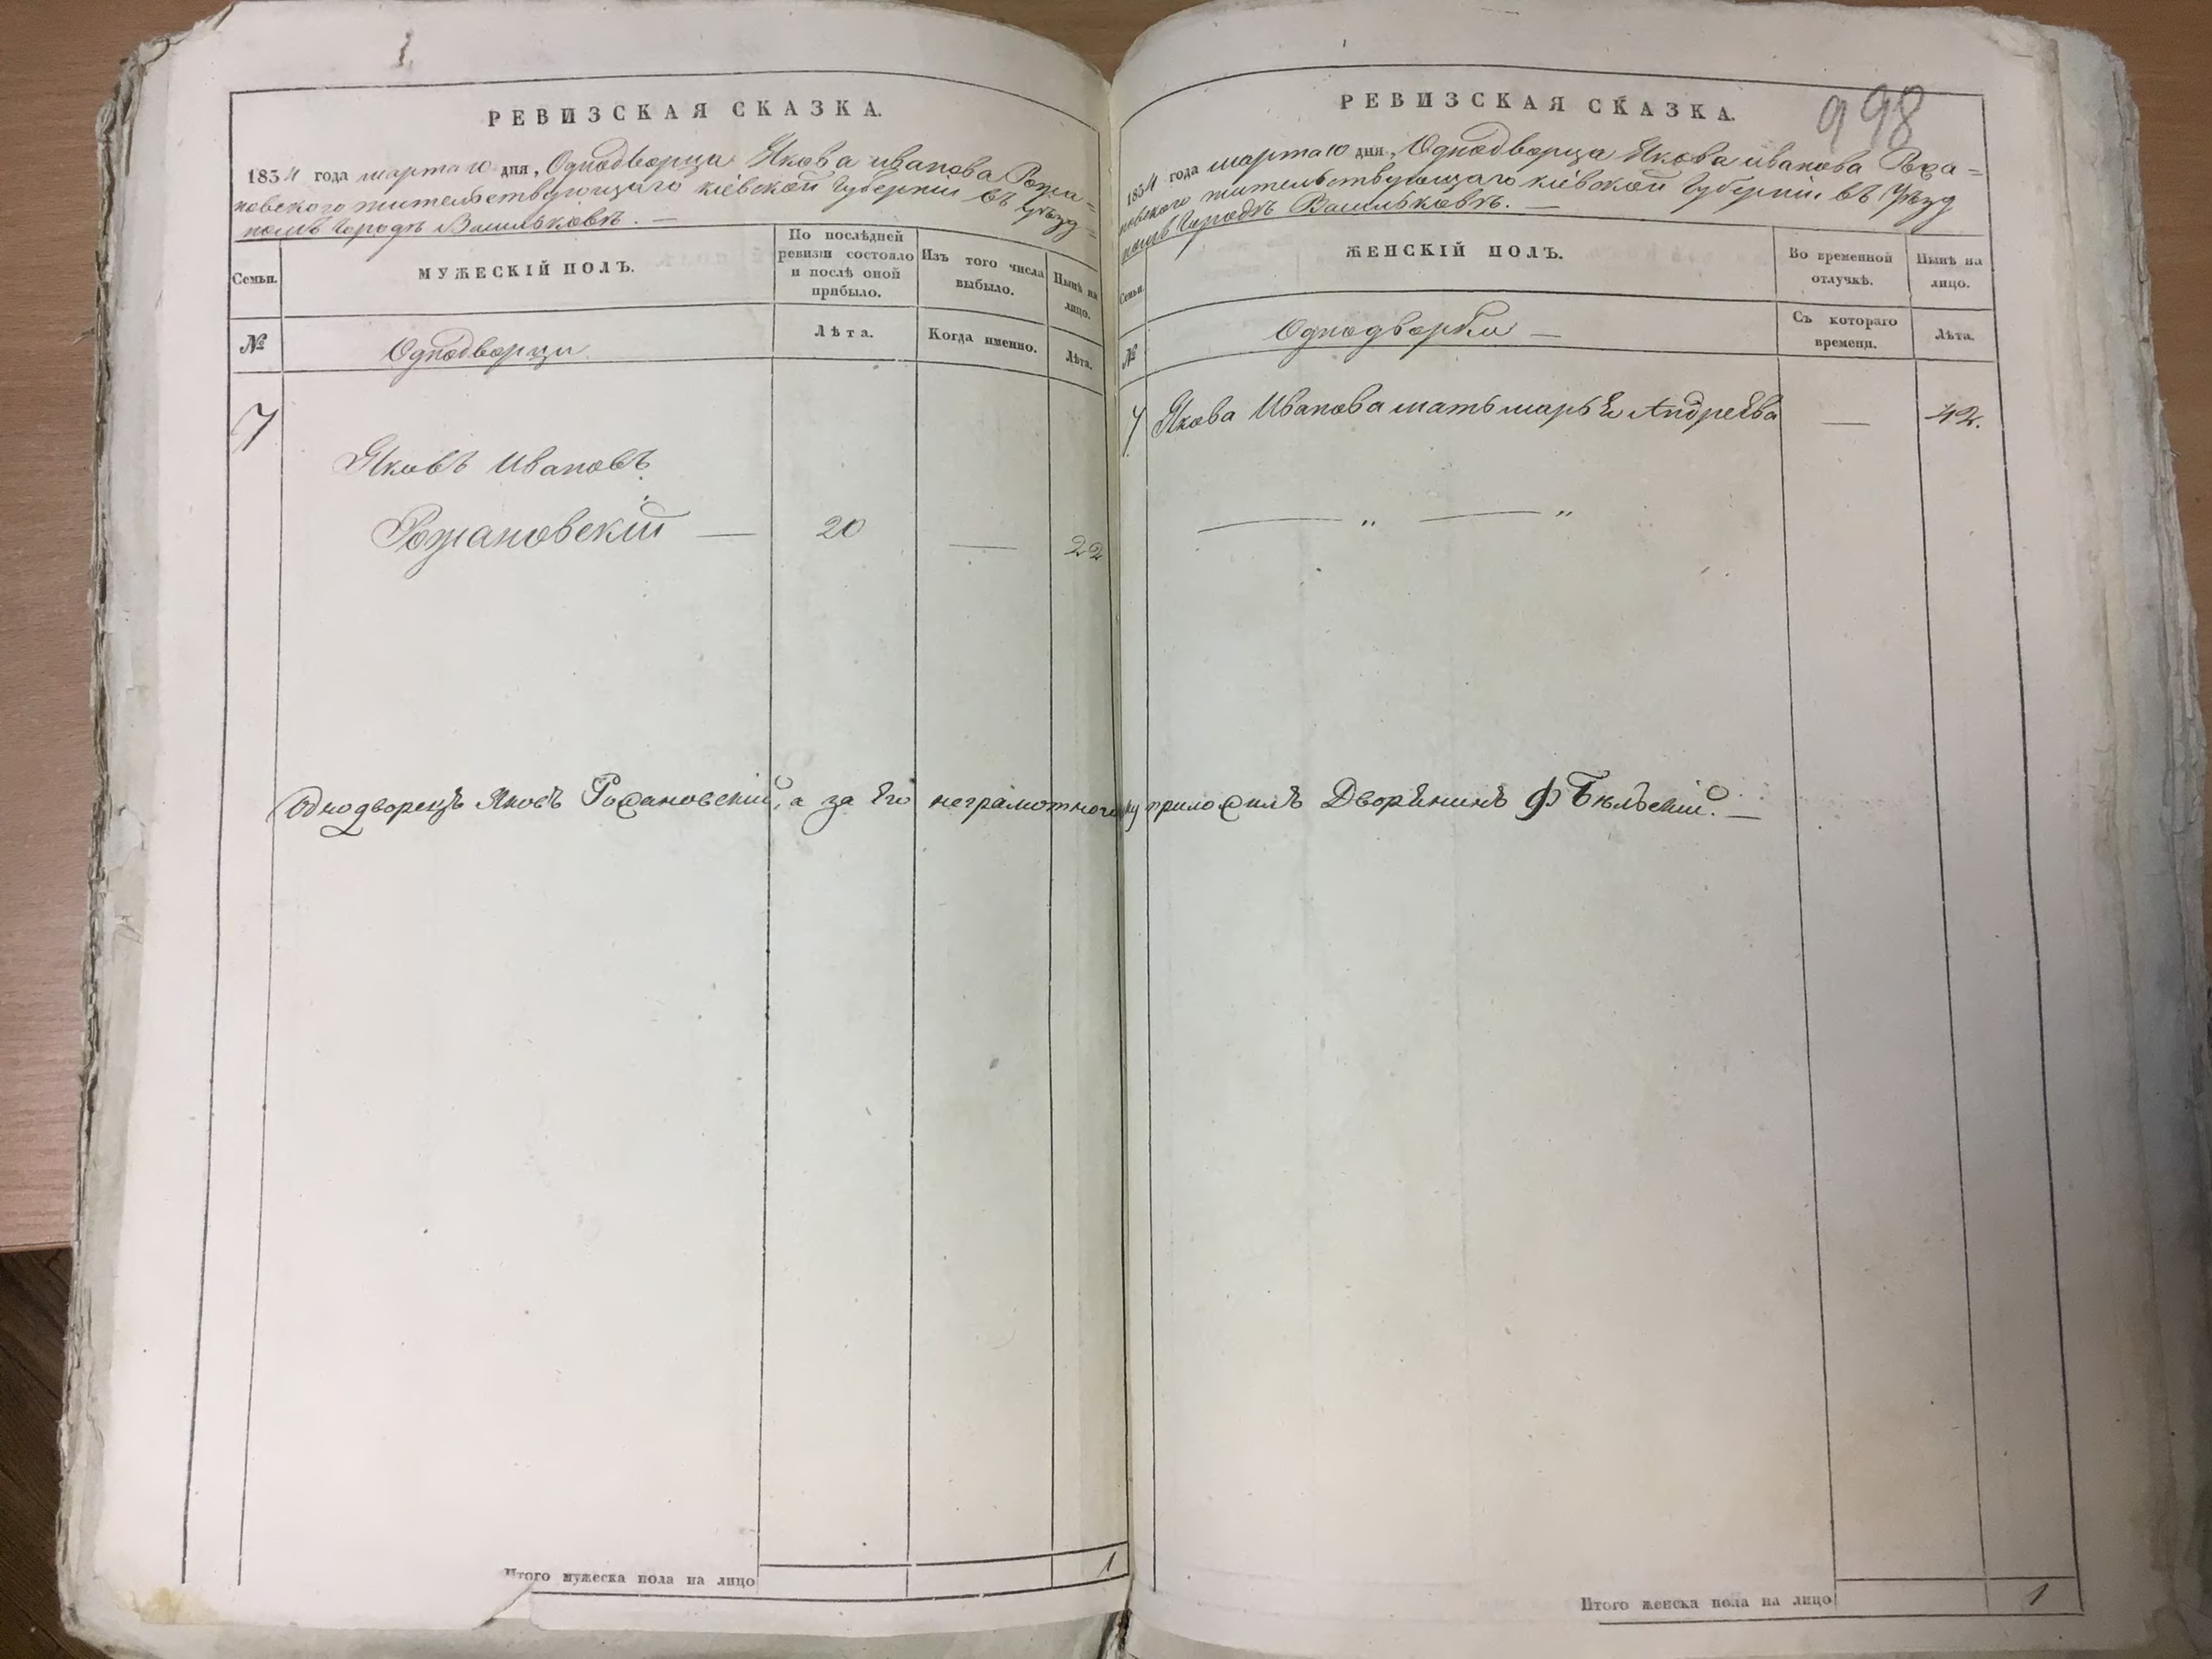 РЕВИЗСКАЯ СКАЗКА.
1834 года марта 10 дня, Однодворца Якова иванова Рожа=
новского жительствующаго кіевской Губерніи въ уѣзд=
номъ Городѣ Васильковѣ. —
Семьи.
МУЖЕСКІЙ ПОЛЪ.
По послѣдней ревизіи состояло и послѣ оной прибыло.
Изъ того числа выбыло.
Нынѣ на лицо.
№
Однодворцы
Лѣта.
Когда именно.
Лѣта.
7
Яковъ Ивановъ
Рожановскій — 20 — 22
Однодворецъ Яковъ Рожановскій, а за Его неграмотного
Итого мужеска пола на лицо 1
РЕВИЗСКАЯ СКАЗКА.
998
1834 года марта 10 дня, Однодворца Якова иванова Рожа=
новского жительствующаго кіевской Губерніи въ Уѣзд
номъ Городѣ Васильковѣ. —
Семьи.
ЖЕНСКІЙ ПОЛЪ.
Во временной отлучкѣ.
Нынѣ на лицо.
№
Однодворки —
Съ котораго времени.
Лѣта.
7 Якова Иванова мать марья Андреева — 42.
— „ — „
приложилъ Дворянинъ Ф Бѣльскій. —
Итого женска пола на лицо 1